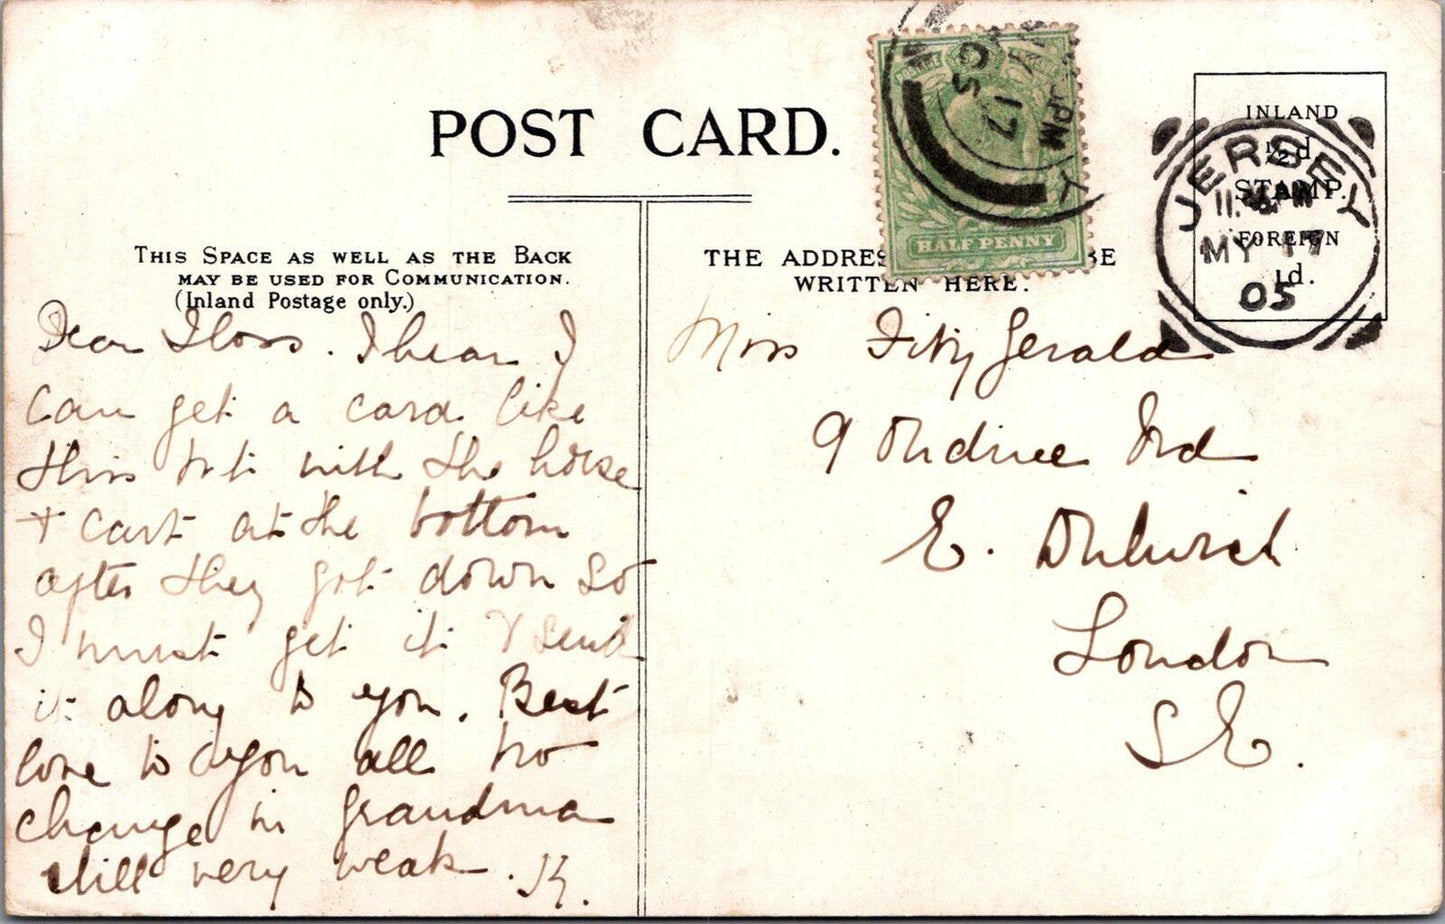 POST CARD.
THIS SPACE AS WELL AS THE BACK
MAY BE USED FOR COMMUNICATION.
(Inland Postage only.)
Dear Floss. I hear I
can get a card like
this but with the horse
+ cart at the bottom
after they got down so
I must get it & send
it along to you. Best
love to you all no
change in grandma
still very weak. K.
THE ADDRES BE
WRITTEN HERE.
Miss FitzGerald
9 Rd
E. Dulwich
London
S E.
HALF PENNY
PM
MY 17
05
Y
INLAND
½d.
STAMP.
FOREIGN
1d.
JERSEY
MY 17
05